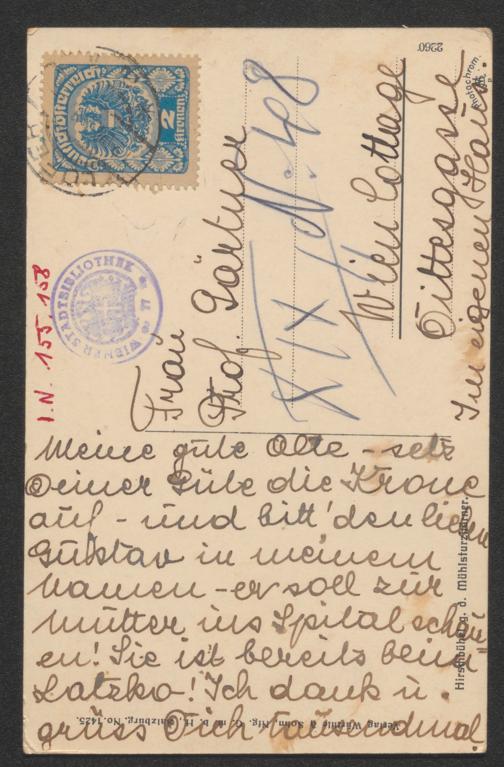 Meine gute Alte - setz
Deiner Güte die Krone
auf - und bitt' den lieben
Gustav in meinem
Namen - er soll zur
Mutter ins Spital schau=
en! Sie ist bereits beim
Latzko! Ich dank u.
grüss Dich tausendmal.
Frau
Prof. Gärtner
Wien Cottage
Dittesgasse
Im eigenen Haus.
XIX/ N. 48
I.N. 155.158
WIENER STADTBIBLIOTHEK
Deutschösterreich
2 Kronen
2260
Photochrom.
Hirschbühelg. d. Mühlsturzhörner.
Verlag Würthle & Sohn, Nfg. G. m. b. H., Salzburg. No. 1425.